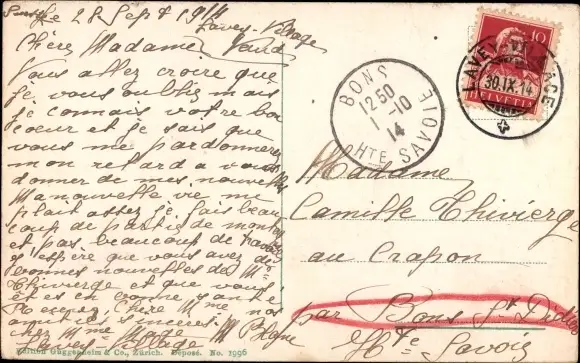 28 Sept 1914
Lavey-Village
Chère Madame Vaud
Vous allez croire que
je vous oublie mais
je connais votre bon
coeur et je sais que
vous me pardonnerez
mon retard a vous
donner de mes nouvelles
Ma nouvelle vie me
plait assez je fais beau
coup de partie de montagne
et pas beaucoup de travail
j'espère que vous avez de
bonnes nouvelles de Mr
Thivierge et que vous
êtes en bonne santé
Recevez Chère Mme nos
amitiés sincères
Lavey-Village
HELVETIA
10
LAVEY-VILLAGE
30.IX.14
BONS
12 50
1-10
14
HTE SAVOIE
Madame
Camille Thivierge
au Crapon
par Bons St Didier
Hte Savoie
Edition Guggenheim & Co., Zürich. Déposé. No. 1996